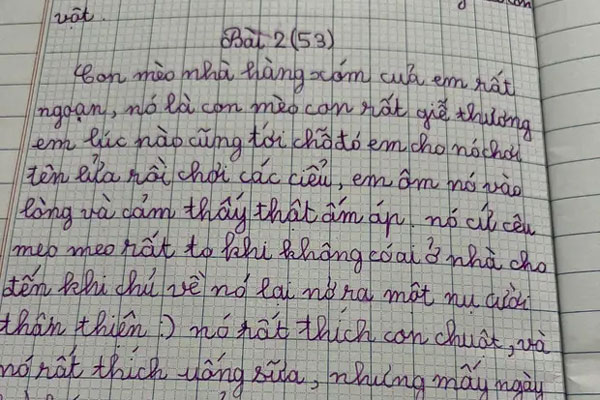 vật.
Bài 2 (53)
Con mèo nhà hàng xóm cưả em rất
ngoạn, nó là con mèo con rất giễ thương
em lúc nào cũng tới chỗ đó em cho nó chơi
tên lửa rồi chơi các ciểu, em ôm nó vào
lòng và cảm thấy thật ấm áp. nó cứ cêu
meo meo rất to khi không có ai ở nhà cho
đến khi chủ về nó lại nở ra một nụ cười
thân thiện :) nó rất thích con chuột, và
nó rất thích uống sữa, nhưng mấy ngày